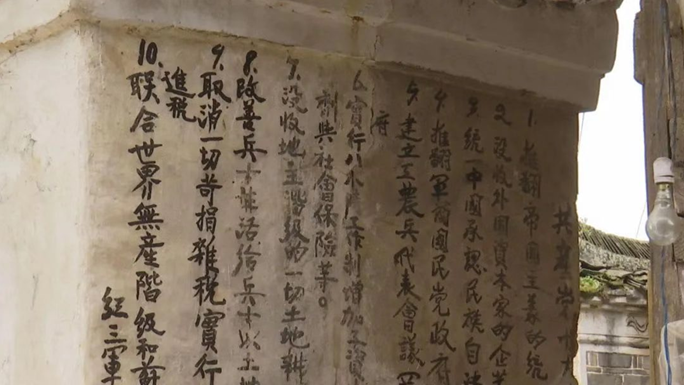 共產党十
1. 推翻帝国主義的統
2. 沒收外国資本家的企業
3. 統一中國承認民族自决
4. 推翻軍閥國民党政府
5. 建立工農兵代表會議
府
6. 實行八小時工作制增加工資
劑與社會保險等。
7. 沒收地主階級的一切土地耕
8. 改善兵士生活给兵士以土地
9. 取消一切苛捐雜税實行
進税
10. 联合世界無産階級和蘇
紅三軍